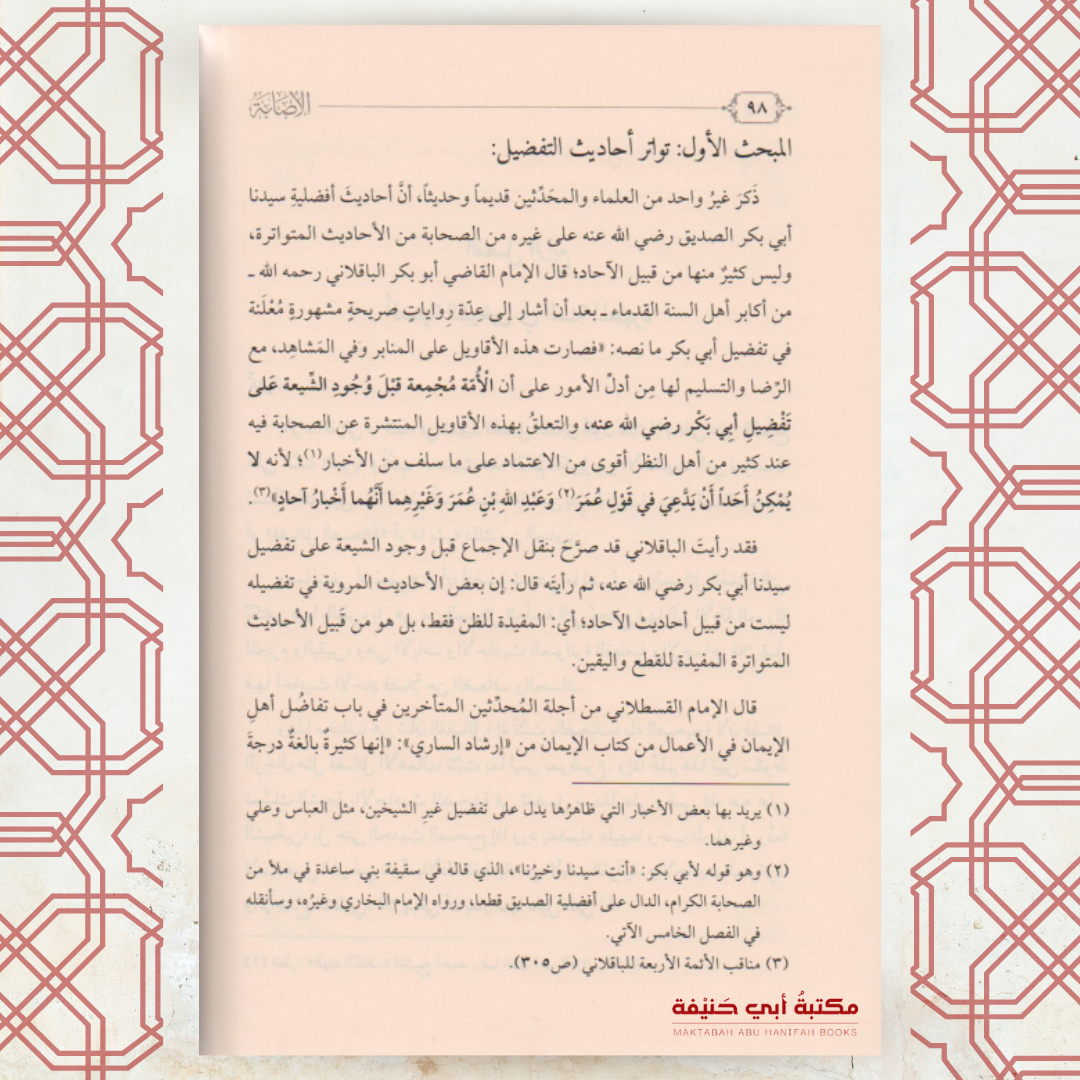 ٩٨
الإصابة
المبحث الأول: تواتر أحاديث التفضيل:
ذَكرَ غيرُ واحد من العلماء والمحَدِّثين قديماً وحديثاً، أنَّ أحاديثَ أفضليةِ سيدنا
أبي بكر الصديق رضي الله عنه على غيره من الصحابة من الأحاديث المتواترة،
وليس كثيرٌ منها من قبيل الآحاد؛ قال الإمام القاضي أبو بكر الباقلاني رحمه الله ـ
من أكابر أهل السنة القدماء ـ بعد أن أشار إلى عِدّة رِواياتٍ صريحةٍ مشهورةٍ مُعْلَنة
في تفضيل أبي بكر ما نصه: «فصارت هذه الأقاويل على المنابر وَفي المَشاهِد، مع
الرِّضا والتسليم لها مِن أدلِّ الأمور على أن الْأُمّة مُجْمِعة قبْلَ وُجُودِ الشِّيعة عَلى
تَفْضِيلِ أبِي بَكْر رضي الله عنه، والتعلقُ بهذه الأقاويل المنتشرة عن الصحابة فيه
عند كثير من أهل النظر أقوى من الاعتماد على ما سلف من الأخبار(١)؛ لأنه لا
يُمْكِنُ أَحَداً أَنْ يَدَّعِيَ في قَوْلِ عُمَرَ(٢) وَعَبْدِ اللهِ بْنِ عُمَرَ وَغَيْرِهِما أَنَّهُما أَخْبارُ آحادٍ»(٣).
فقد رأيتَ الباقلاني قد صرَّحَ بنقل الإجماع قبل وجود الشيعة على تفضيل
سيدنا أبي بكر رضي الله عنه، ثم رأيتَه قال: إن بعض الأحاديث المروية في تفضيله
ليست من قبيل أحاديث الآحاد؛ أي: المفيدة للظن فقط، بل هو من قَبيل الأحاديث
المتواترة المفيدة للقطع واليقين.
قال الإمام القسطلاني من أجلة المُحدِّثين المتأخرين في باب تفاضُل أهلِ
الإيمان في الأعمال من كتاب الإيمان من «إرشاد الساري»: «إنها كثيرةٌ بالغةٌ درجةَ
(١) يريد بها بعض الأخبار التي ظاهرُها يدل على تفضيل غيرِ الشيخين، مثل العباس وعلي
وغيرهما.
(٢) وهو قوله لأبي بكر: «أنت سيدنا وخيرُنا»، الذي قاله في سقيفة بني ساعدة في ملأ من
الصحابة الكرام، الدال على أفضلية الصديق قطعا، ورواه الإمام البخاري وغيرُه، وسأنقله
في الفصل الخامس الآتي.
(٣) مناقب الأئمة الأربعة للباقلاني (ص٣٠٥).
مكتبةُ أبي حَنيْفة
MAKTABAH ABU HANIFAH BOOKS